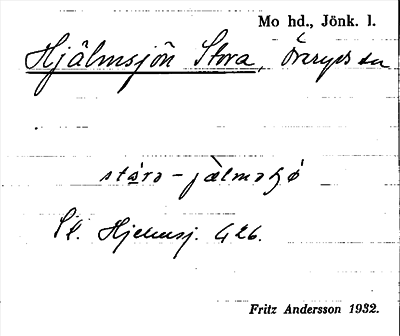 Mo hd., Jönk. l.
Hjälmsjön Stora, Öreryds sn
stóra - jàlmaʃø
St. Hjelmsj. G 26.
Fritz Andersson 1932.